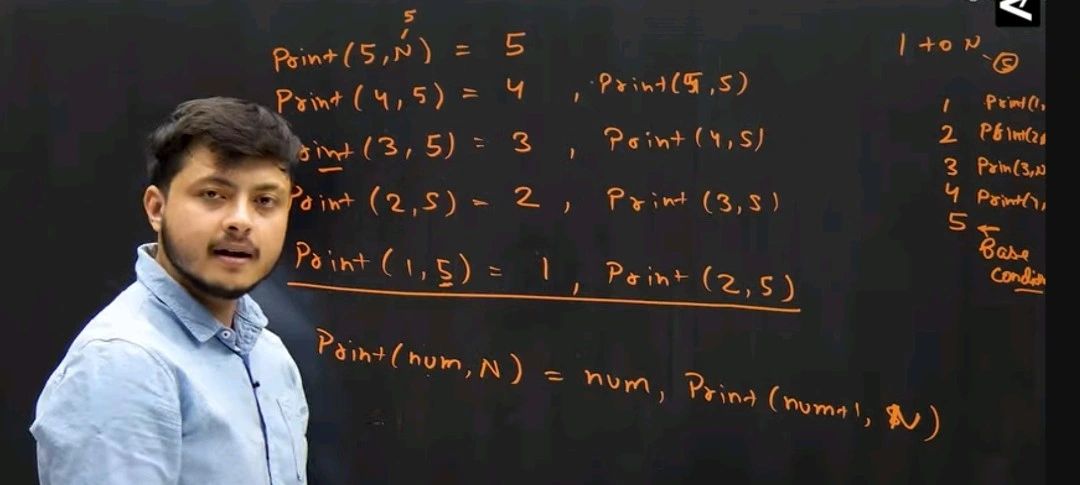 5
Print(5,N) = 5
Print(4,5) = 4 , Print(5,5)
Print(3,5) = 3 , Print(4,5)
Print(2,5) = 2 , Print(3,5)
Print(1,5) = 1 , Print(2,5)
Print(num,N) = num, Print(num+1, N)
1 to N
5
1 Print(1,
2 Print(2,
3 Prin(3,N
4 Print(4,
5 ←
Base
Condition